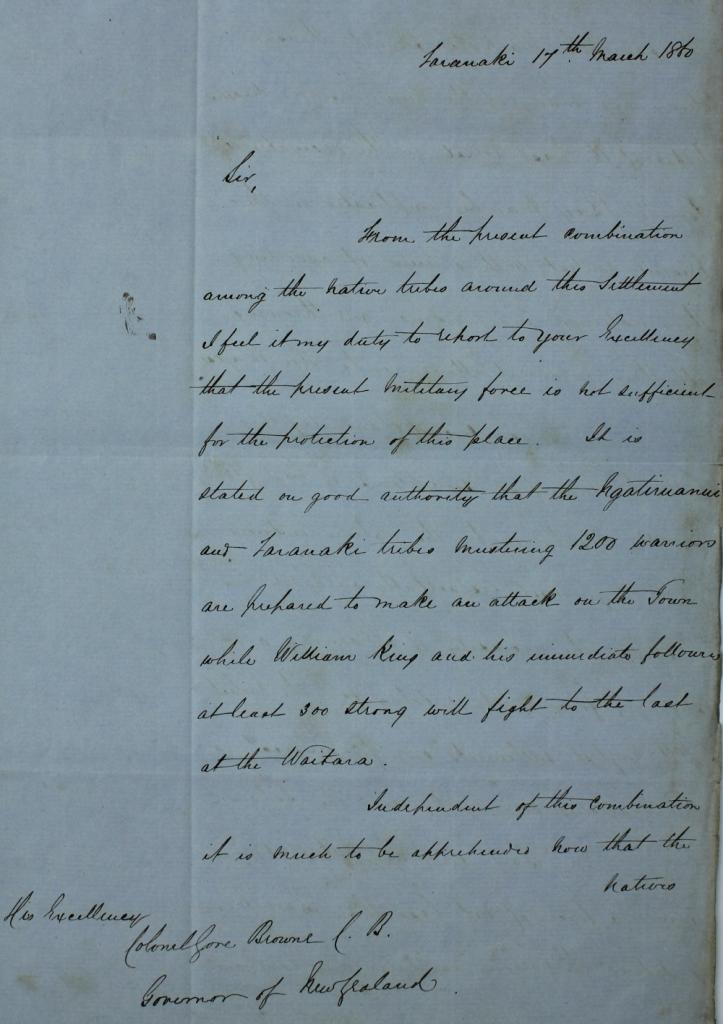 Taranaki 17th March 1860
Sir,
From the present combination
among the native tribes around this Settlement
I feel it my duty to report to your Excellency
that the present Military force is not sufficient
for the protection of this place. It is
stated on good authority that the Ngatiruanui
and Taranaki tribes mustering 1200 warriors
are prepared to make an attack on the Town
while William King and his immediate followers
at least 300 strong will fight to the last
at the Waitara.
Independent of this combination
it is much to be apprehended now that the
natives
His Excellency
Colonel Gore Browne C. B.
Governor of New Zealand.